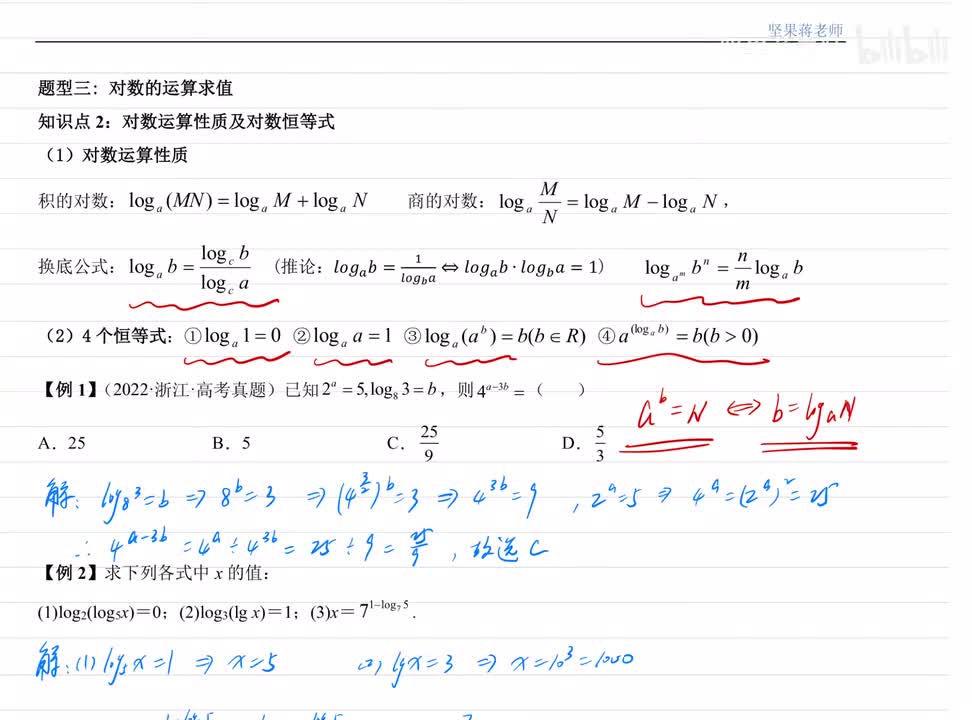 坚果蒋老师
bilibili
题型三：对数的运算求值
知识点 2：对数运算性质及对数恒等式
（1）对数运算性质
积的对数：logₐ(MN) = logₐ M + logₐ N 商的对数：logₐ M/N = logₐ M − logₐ N，
换底公式：logₐ b = log_c b / log_c a （推论：logₐb = 1/log_b a ⇔ logₐb · log_b a = 1） log_{a^m} b^n = n/m logₐ b
（2）4 个恒等式：①logₐ 1 = 0 ②logₐ a = 1 ③logₐ(a^b) = b(b ∈ R) ④a^(logₐ b) = b(b > 0)
【例 1】（2022·浙江·高考真题）已知 2^a = 5, log₈ 3 = b，则 4^{a−3b} =（ ）
a^b = N ⇔ b = logₐN
A．25 B．5 C．25/9 D．5/3
解：log₈3 = b ⇒ 8^b = 3 ⇒ (4^{3/2})^b = 3 ⇒ 4^{3b} = 9 , 2^a = 5 ⇒ 4^a = (2^a)^2 = 25
∴ 4^{a−3b} = 4^a ÷ 4^{3b} = 25 ÷ 9 = 25/9 , 故选 C
【例 2】求下列各式中 x 的值：
(1)log₂(log₅x)＝0；(2)log₃(lg x)＝1；(3)x＝7^{1−log₇ 5}．
解：(1) log₅x = 1 ⇒ x = 5 (2) lgx = 3 ⇒ x = 10³ = 1000